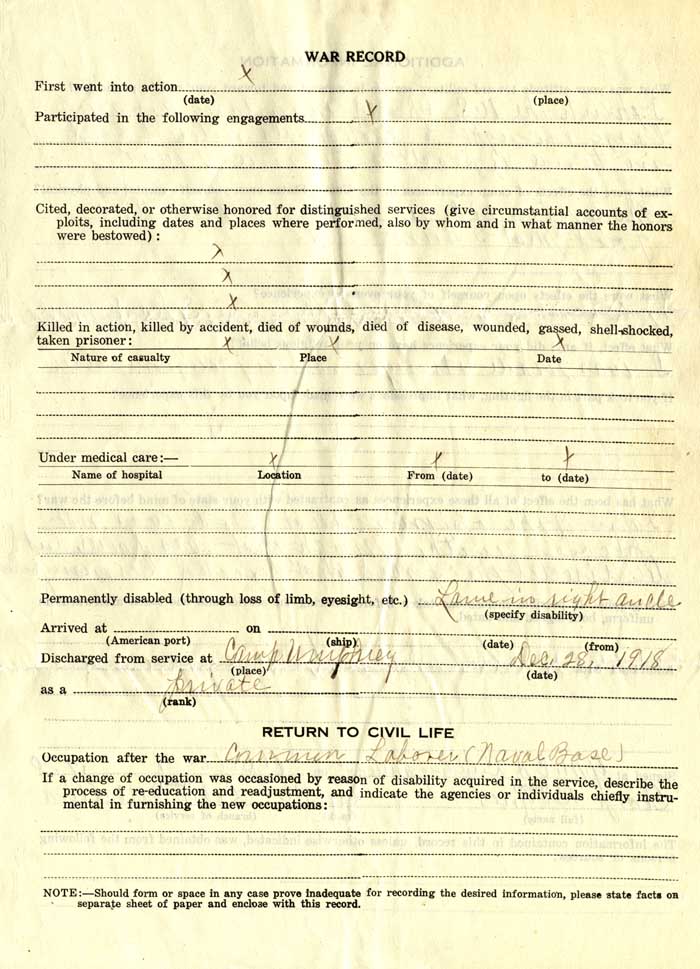 WAR RECORD
First went into action x
(date) (place)
Participated in the following engagements x
Cited, decorated, or otherwise honored for distinguished services (give circumstantial accounts of ex-
ploits, including dates and places where performed, also by whom and in what manner the honors
were bestowed) :
x
x
x
Killed in action, killed by accident, died of wounds, died of disease, wounded, gassed, shell-shocked,
taken prisoner: x x x
Nature of casualty Place Date
Under medical care:— x x x
Name of hospital Location From (date) to (date)
Permanently disabled (through loss of limb, eyesight, etc.) Lame in right ancle
(specify disability)
Arrived at on
(American port) (ship) (date) (from)
Discharged from service at Camp Dec. 28, 1918
(place) (date)
as a Private
(rank)
RETURN TO CIVIL LIFE
Occupation after the war Common Laborer (Naval Base)
If a change of occupation was occasioned by reason of disability acquired in the service, describe the
process of re-education and readjustment, and indicate the agencies or individuals chiefly instru-
mental in furnishing the new occupations:
NOTE:—Should form or space in any case prove inadequate for recording the desired information, please state facts on
separate sheet of paper and enclose with this record.